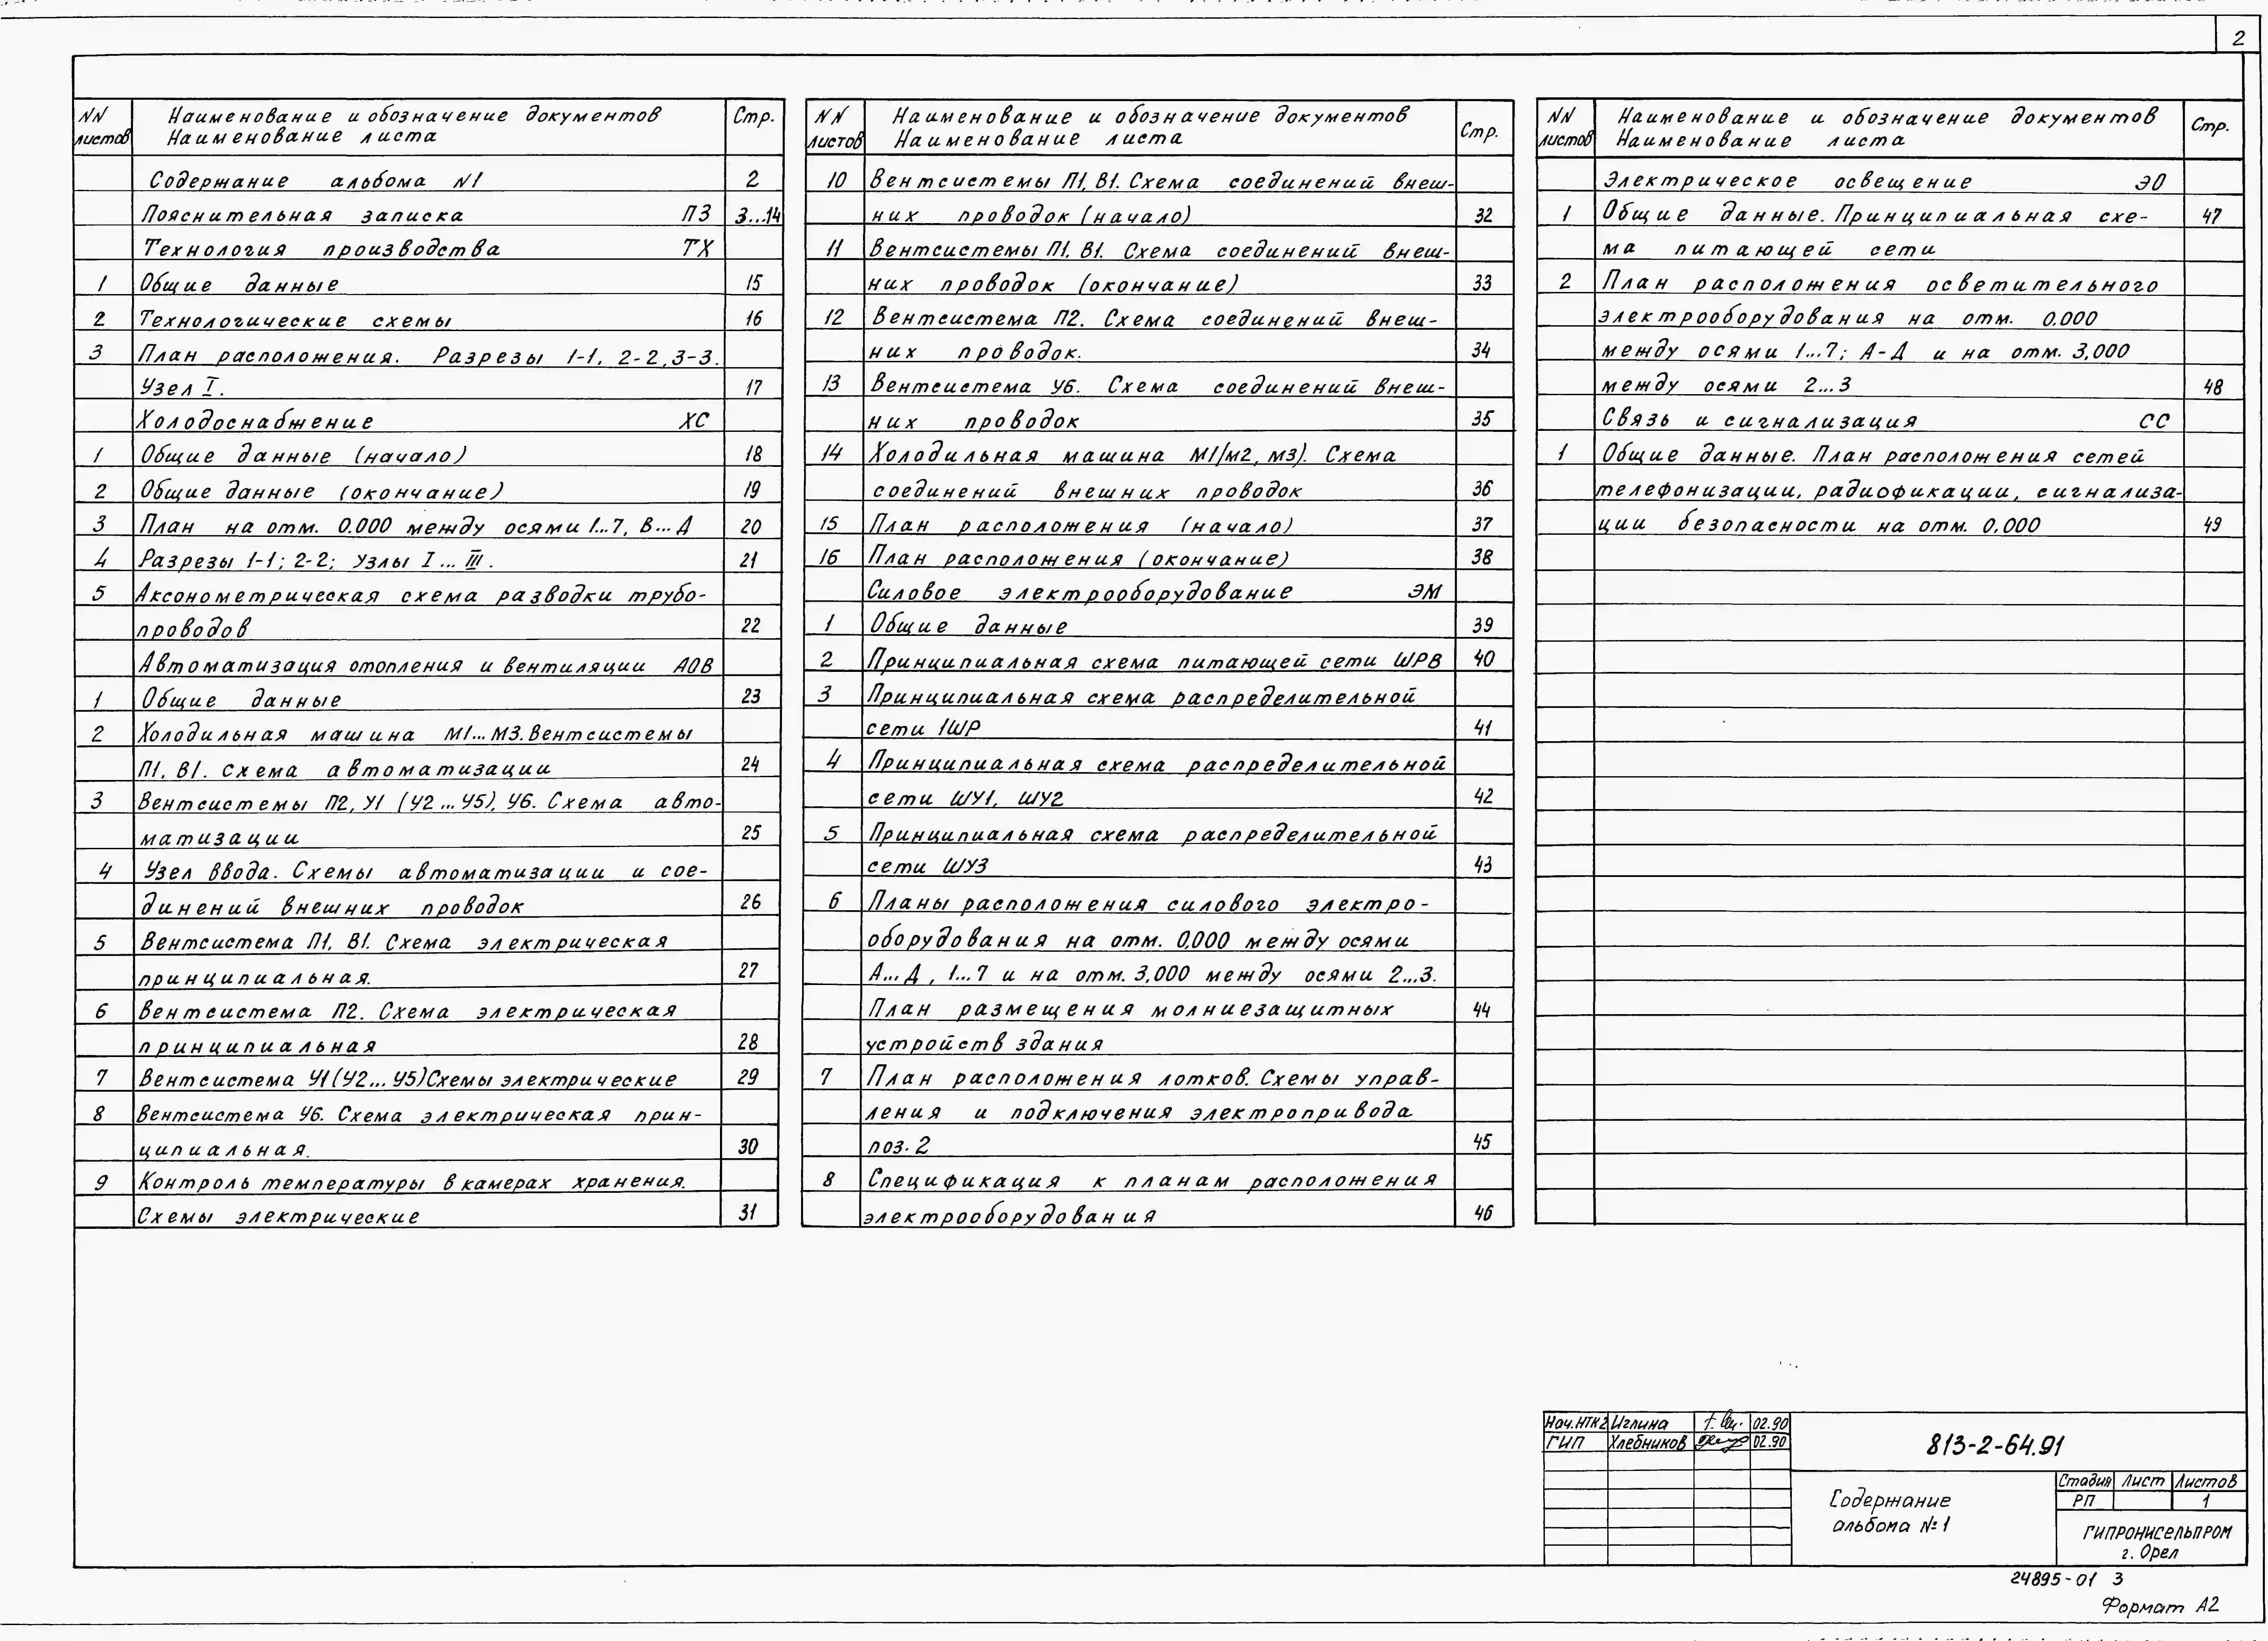 2
NN листов Наименование и обозначение документов Наименование листа Стр.
Содержание альбома N1 2
Пояснительная записка ПЗ 3...14
Технология производства ТХ
1 Общие данные 15
2 Технологические схемы 16
3 План расположения. Разрезы 1-1, 2-2, 3-3.
Узел I. 17
Холодоснабжение ХС
1 Общие данные (начало) 18
2 Общие данные (окончание) 19
3 План на отм. 0.000 между осями 1...7, В...Д 20
4 Разрезы 1-1; 2-2; Узлы I ... III. 21
5 Аксонометрическая схема разводки трубо-
проводов 22
Автоматизация отопления и вентиляции АОВ
1 Общие данные 23
2 Холодильная машина М1...М3. Вентсистемы
П1, В1. Схема автоматизации 24
3 Вентсистемы П2, У1 (У2...У5), У6. Схема авто-
матизации 25
4 Узел ввода. Схемы автоматизации и сое-
динений внешних проводок 26
5 Вентсистема П1, В1. Схема электрическая
принципиальная. 27
6 Вентсистема П2. Схема электрическая
принципиальная 28
7 Вентсистема У1(У2...У5)Схемы электрические 29
8 Вентсистема У6. Схема электрическая прин-
ципиальная. 30
9 Контроль температуры в камерах хранения.
Схемы электрические 31
NN листов Наименование и обозначение документов Наименование листа Стр.
10 Вентсистемы П1, В1. Схема соединений внеш-
них проводок (начало) 32
11 Вентсистемы П1, В1. Схема соединений внеш-
них проводок (окончание) 33
12 Вентсистема П2. Схема соединений внеш-
них проводок. 34
13 Вентсистема У6. Схема соединений внеш-
них проводок 35
14 Холодильная машина М1(М2, М3). Схема
соединений внешних проводок 36
15 План расположения (начало) 37
16 План расположения (окончание) 38
Силовое электрооборудование ЭМ
1 Общие данные 39
2 Принципиальная схема питающей сети ШРВ 40
3 Принципиальная схема распределительной
сети 1ШР 41
4 Принципиальная схема распределительной
сети ШУ1, ШУ2 42
5 Принципиальная схема распределительной
сети ШУ3 43
6 Планы расположения силового электро-
оборудования на отм. 0,000 между осями
А...Д, 1...7 и на отм. 3,000 между осями 2...3.
План размещения молниезащитных 44
устройств здания
7 План расположения лотков. Схемы управ-
ления и подключения электропривода
поз. 2 45
8 Спецификация к планам расположения
электрооборудования 46
NN листов Наименование и обозначение документов Наименование листа Стр.
Электрическое освещение ЭО
1 Общие данные. Принципиальная схе- 47
ма питающей сети
2 План расположения осветительного
электрооборудования на отм. 0.000
между осями 1...7; А-Д и на отм. 3,000
между осями 2...3 48
Связь и сигнализация СС
1 Общие данные. План расположения сетей
телефонизации, радиофикации, сигнализа-
ции безопасности на отм. 0,000 49
Нач.НТК2 Иглина 02.90
ГИП Хлебников 02.90
813-2-64.91
Содержание
альбома №1
Стадия Лист Листов
РП 1
ГИПРОНИСЕЛЬПРОМ
г. Орел
24895-01 3
Формат А2